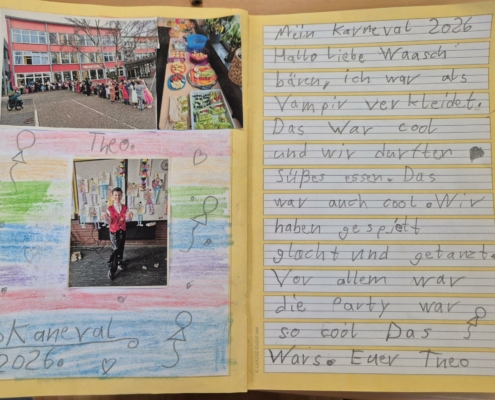 Theo.
Kaneval
2026.
Mein Karneval 2026
Hallo liebe Waasch
bären, ich war als
Vampir verkleidet.
Das war cool
und wir durften
süßes essen. Das
war auch cool. Wir
haben gespielt
glacht und getanzt.
Vor allem war
die Party war
so cool Das
Wars. Euer Theo